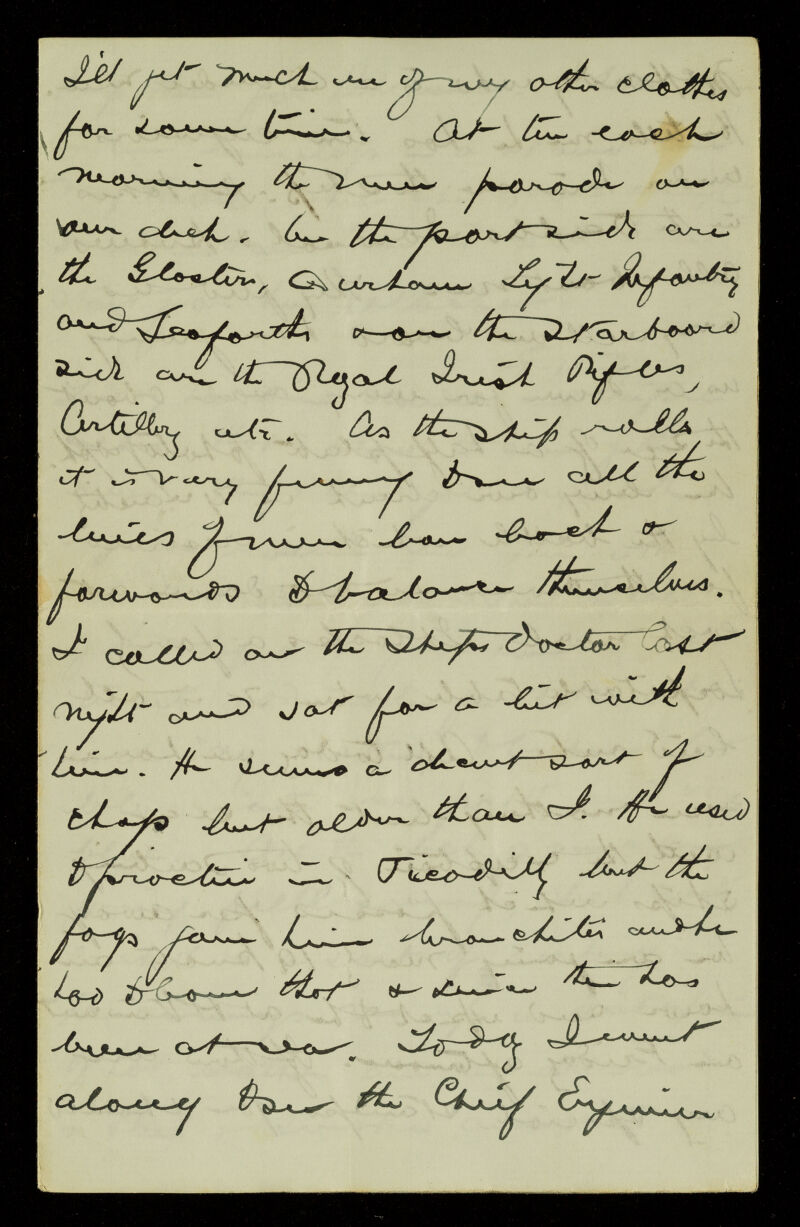 I'll get much use of my other clothes
for some time. At ten each
morning the men parade on
our deck. On the port side are
the Glosters, Durham Light Infantry
and Seaforths & on the starboard
side are the Royal Irish Rifles,
Artillery etc. As the ship rolls
it is very funny to see all the
lines of men bow back &
forwards to balance themselves.
I called on the ships doctor last
night and sat for a bit with
him. He seems a decent sort of
chap but older than I. He used
to practice in Picadilly but the
fogs gave him bronchitis and he
had to leave that & since then has
been at sea. Today I went
along to see the Chief Engineer